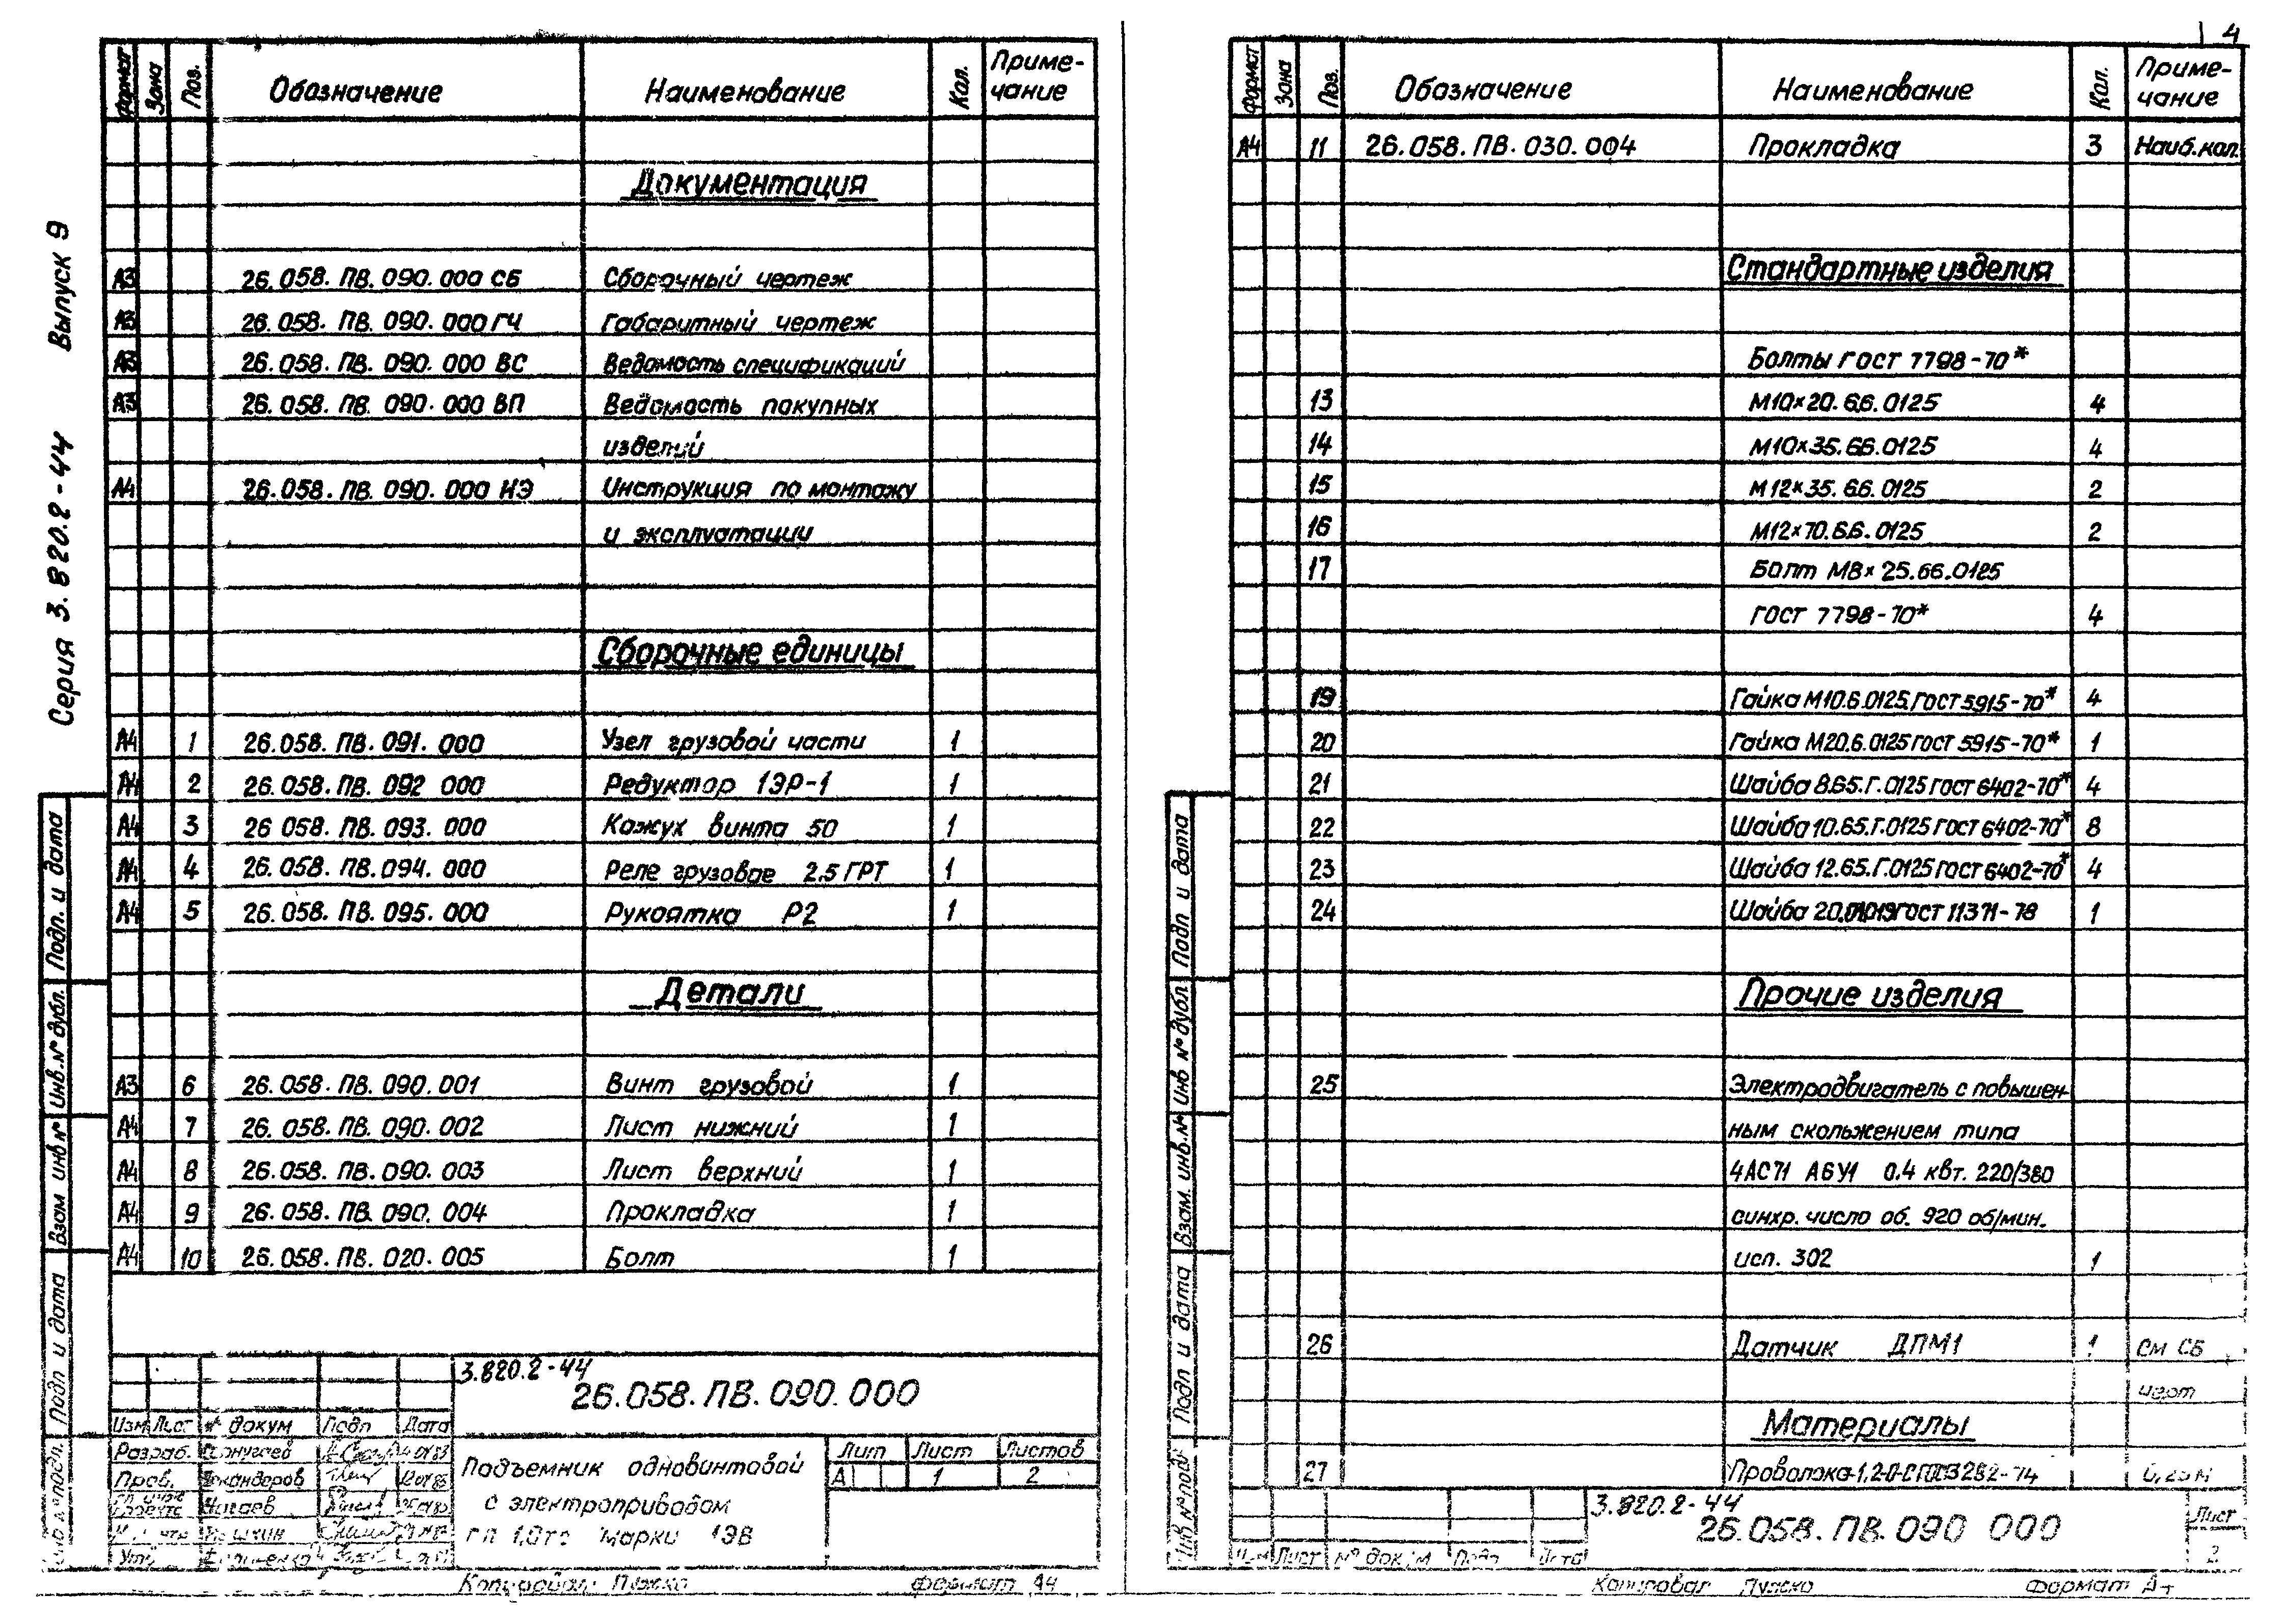 Серия 3.820.2-44 Выпуск 9
Формат Зона Поз. Обозначение Наименование Кол. Приме-
чание
Документация
А3 26.058.ПВ.090.000 СБ Сборочный чертеж
А3 26.058.ПВ.090.000 ГЧ Габаритный чертеж
А3 26.058.ПВ.090.000 ВС Ведомость спецификаций
А3 26.058.ПВ.090.000 ВП Ведомость покупных
изделий
А4 26.058.ПВ.090.000 ИЭ Инструкция по монтажу
и эксплуатации
Сборочные единицы
А4 1 26.058.ПВ.091.000 Узел грузовой части 1
А4 2 26.058.ПВ.092 000 Редуктор 1ЭР-1 1
А4 3 26 058.ПВ.093.000 Кожух винта 50 1
А4 4 26.058.ПВ.094.000 Реле грузовое 2.5 ГРТ 1
А4 5 26.058.ПВ.095.000 Рукоятка Р2 1
Детали
А3 6 26.058.ПВ.090.001 Винт грузовой 1
А4 7 26.058.ПВ.090.002 Лист нижний 1
А4 8 26.058.ПВ.090.003 Лист верхний 1
А4 9 26.058.ПВ.090.004 Прокладка 1
А4 10 26.058.ПВ.020.005 Болт 1
3.820.2-44
26.058.ПВ.090.000
Изм Лист № докум Подп Дата
Разраб.
Пров.
Нигаев
Утв
Подъемник одновинтовой
с электроприводом
гп 1,0тс марки 1ЭВ
Лит Лист Листов
А 1 2
Копировал: Пужко Формат А4
Подп. и дата
Инв.№ дубл.
Взам инв №
Подп и дата
Инв № подл.
4
Формат Зона Поз. Обозначение Наименование Кол. Приме-
чание
А4 11 26.058.ПВ.030.004 Прокладка 3 Наиб.кол.
Стандартные изделия
Болты ГОСТ 7798-70*
13 М10×20.66.0125 4
14 М10×35.66.0125 4
15 М12×35.66.0125 2
16 М12×70.66.0125 2
17 Болт М8×25.66.0125
ГОСТ 7798-70* 4
19 Гайка М10.6.0125.ГОСТ 5915-70* 4
20 Гайка М20.6.0125 ГОСТ 5915-70* 1
21 Шайба 8.65.Г.0125 ГОСТ 6402-70* 4
22 Шайба 10.65.Г.0125 ГОСТ 6402-70* 8
23 Шайба 12.65.Г.0125 ГОСТ 6402-70* 4
24 Шайба 20.01.019 ГОСТ 11371-78 1
Прочие изделия
25 Электродвигатель с повышен-
ным скольжением типа
4АС71 А6У1 0.4 квт. 220/380
синхр. число об. 920 об/мин.
исп. 302 1
26 Датчик ДПМ1 1 см СБ
черт
Материалы
27 Проволока-1,2-0-С ГОСТ 3282-74 0,25м
3.820.2-44
26.058.ПВ.090 000
Лист
2
Изм Лист № докум Подп Дата
Копировал Пужко Формат А4
Подп и дата
Инв № дубл
Взам. инв.№
Подп и дата
Инв № подл